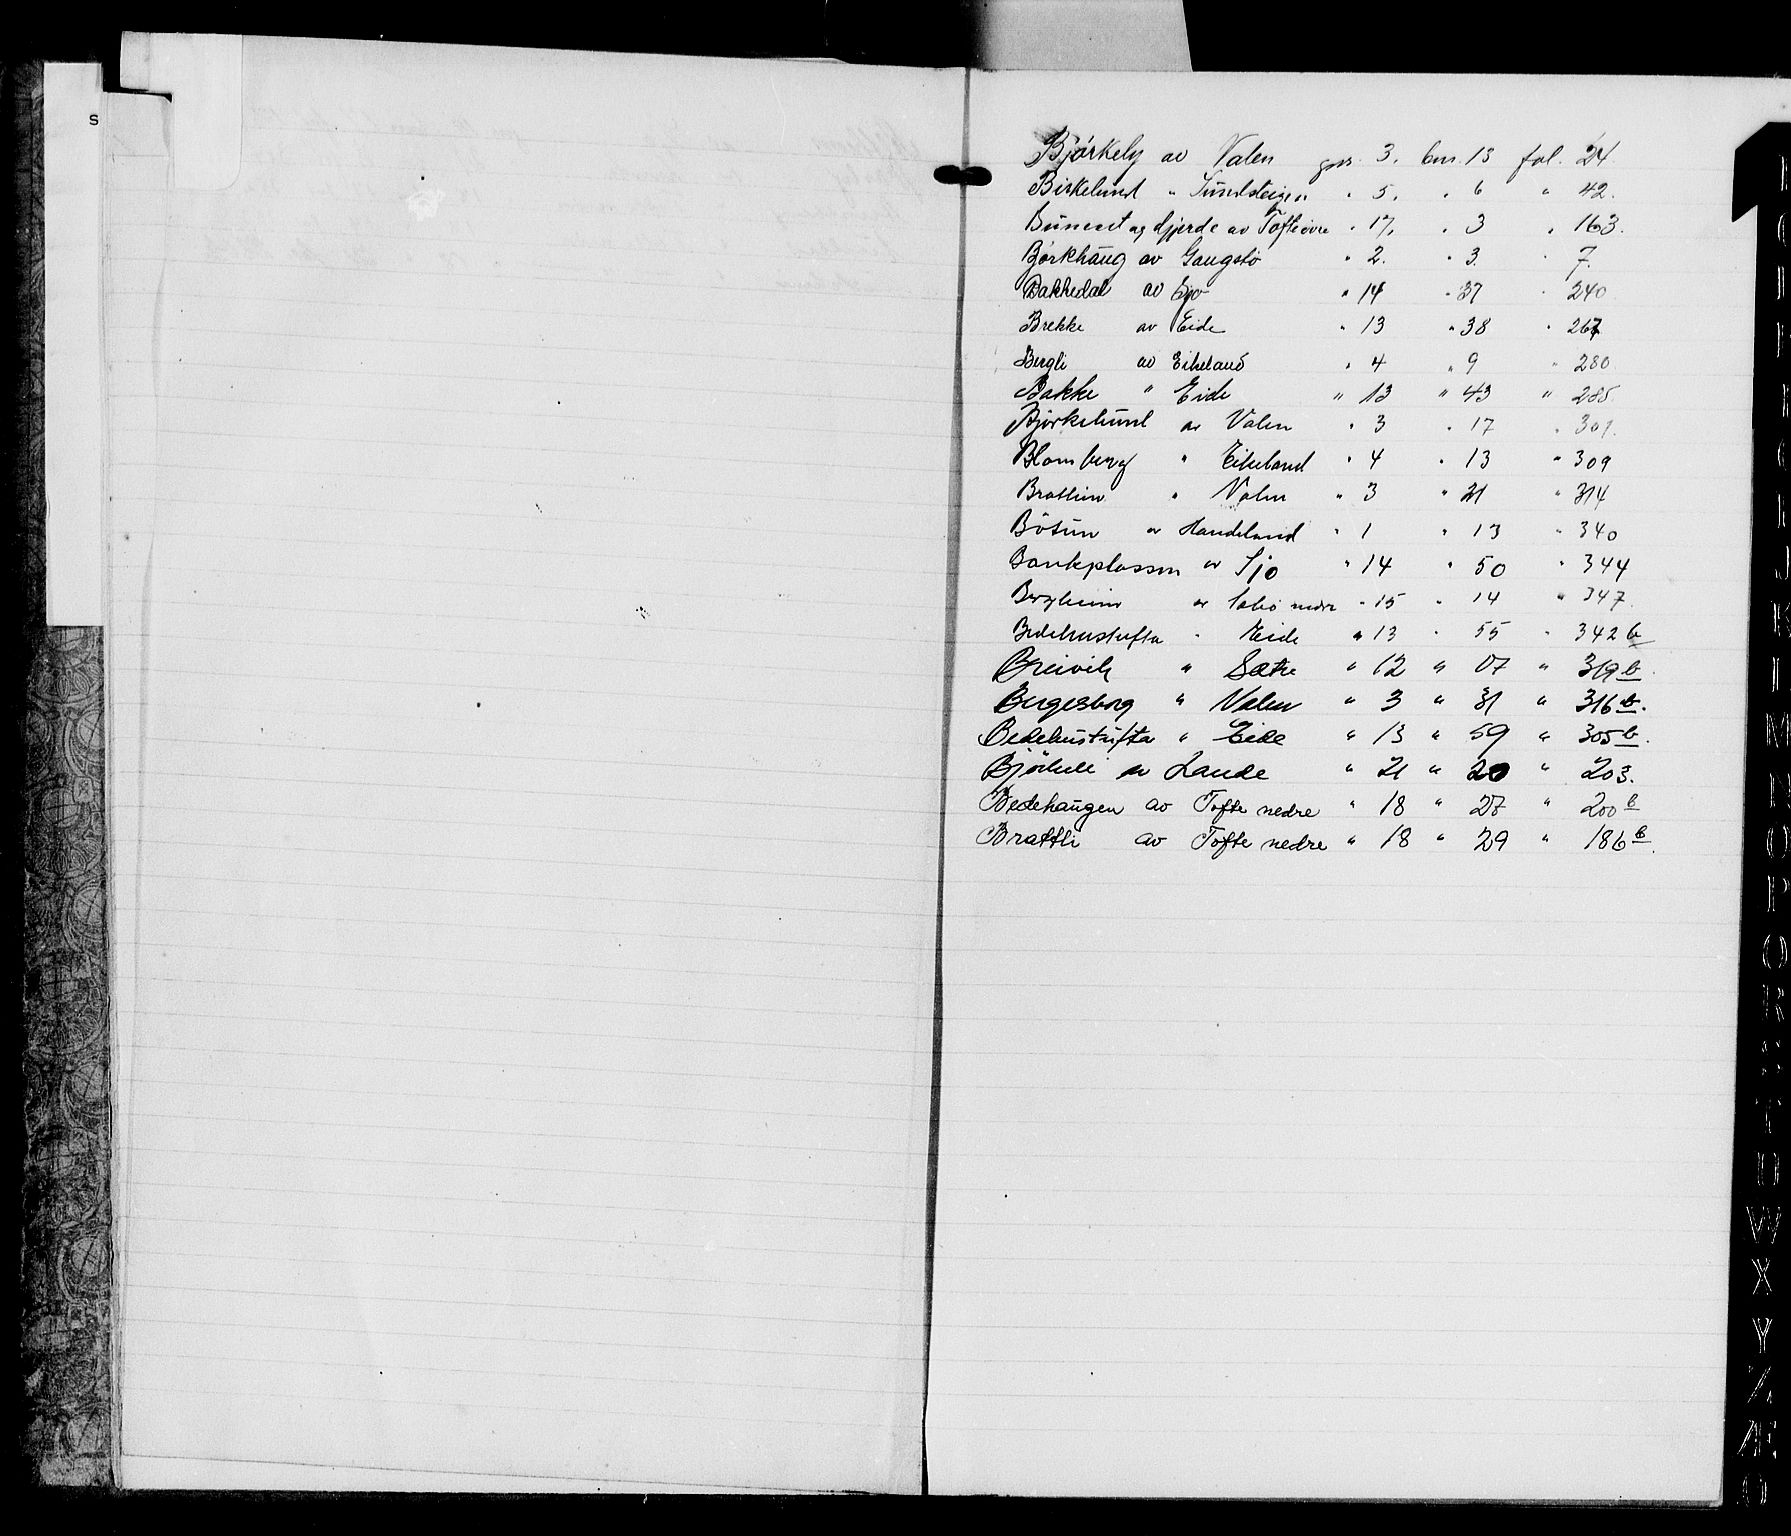 S
Bjørkely av Valen gnr. 3. bnr. 13 fol. 24.
Birkelund " Sundsteigen " 5. " 6 " 42.
Buneset og djerde av Tofte øvre " 17. " 3 " 163.
Bjørkhaug av Gaugstø " 2. " 3. " 7.
Bakkedal av Sjo " 14 " 37 " 240
Brekke av Eide " 13 " 38 " 267
Bergli av Eikeland " 4 " 9 " 280
Bakke " Eide " 13 " 43 " 285.
Bjørkelund av Valen " 3 " 17 " 301.
Blomberg " Eikeland " 4 " 13 " 309
Brattun " Valen " 3 " 21 " 314
Bøtun av Handeland " 1 " 13 " 340
Bankplassen av Sjo " 14 " 50 " 344
Bergheim av nedre " 15 " 14 " 347.
Bedehustufta " Eide " 13 " 55 " 342 b
Breivik " Sætre " 12 " 17 " 319 b.
Bergesborg " Valen " 3 " 31 " 316 b.
Bedehustufta " Eide " 13 " 59 " 305 b.
Bjørkeli av Lande " 21 " 20 " 203.
Bedehaugen av Tofte nedre " 18 " 27 " 200 b
Brattli av Tofte nedre " 18 " 29 " 186 b.
W
X
Y
Z
Æ
Ø